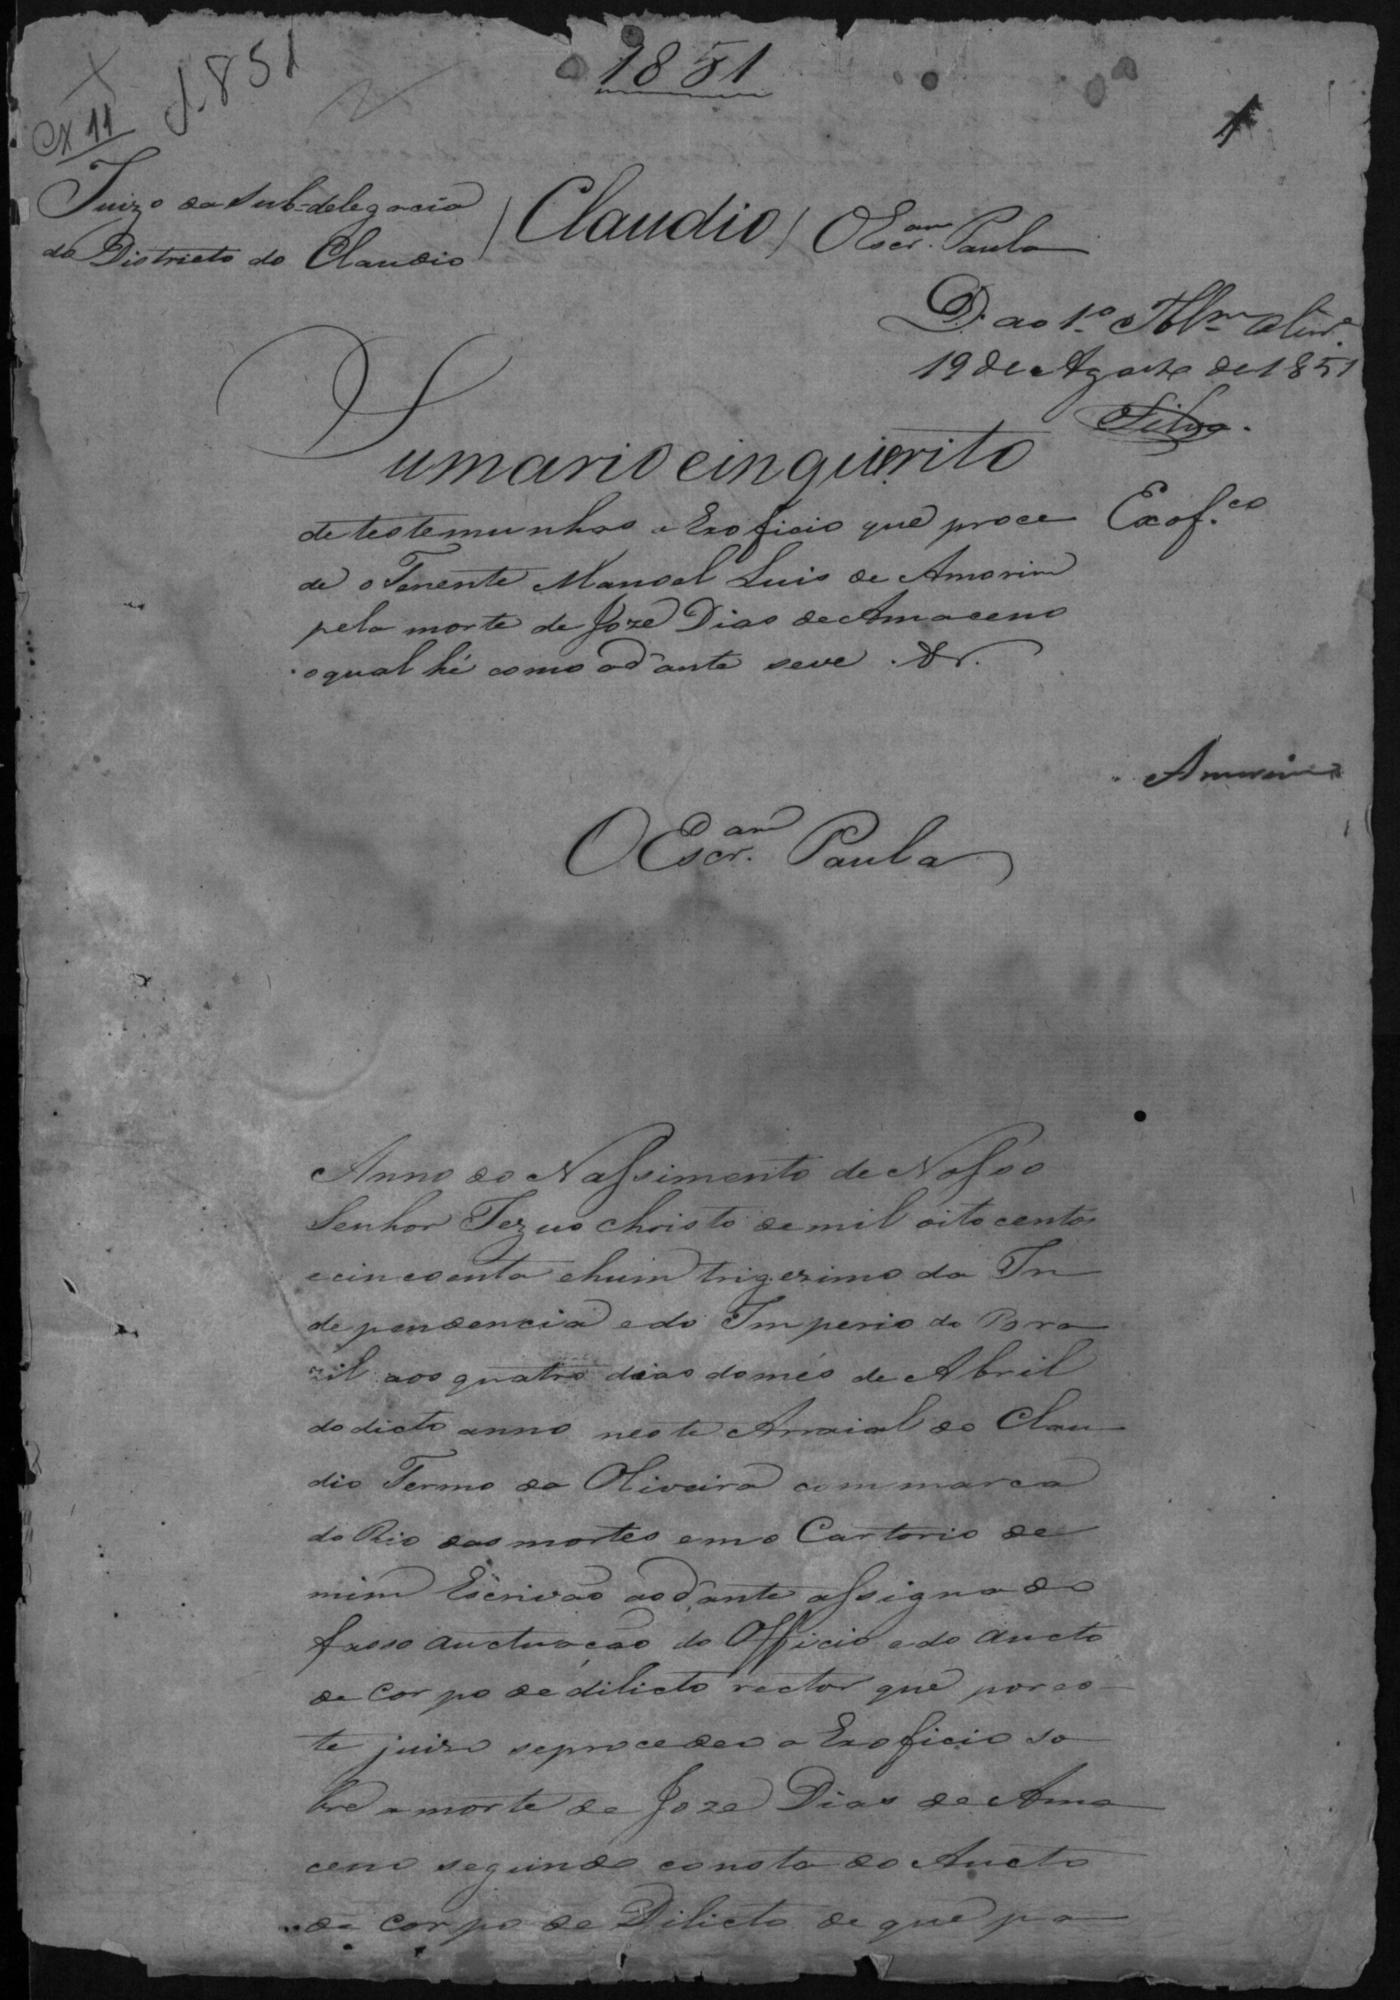 1851
J. 851
CX 11
1
Juizo da Sub-delegacia
do Districto do Claudio
Claudio
O Escr.am Paula
D. ao 1.o
19 de Agosto de 1851
Silva.
Sumario e inquirito
de testemunhas a Exoficio que proce
de o Tenente Manoel Luis de Amorim
pela morte de Joze Dias de Amaceno
o qual hé como adiante seve. &r.
Exof.co
Amorim
O Escr.am Paula
Anno do Nassimento de Nosso
Senhor Jezus Christo de mil oito centos
e cincoenta e hum trigezimo da In
dependencia e do Imperio do Bra
zil aos quatro dias do més de Abril
do dicto anno neste Arraial do Clau
dio Termo da Oliveira commarca
do Rio das mortes em o Cartorio de
mim Escrivão aodiante assignado
fasso auctuação do Officio e do aucto
de Corpo de dilicto rector que por es
te juizo seprocedeo a Exoficio so
bre a morte de Joze Dias de Ama
ceno segundo consta do Aucto
de Corpo de Dilicto de que pa